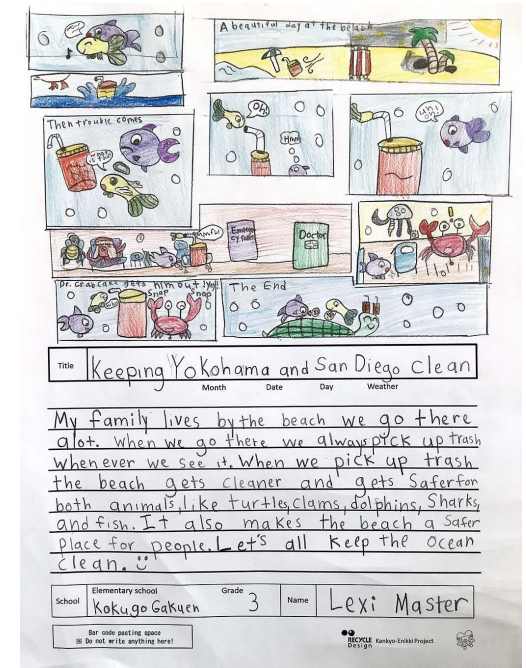 A beautiful day at the beach
Then trouble comes
oh!
Hmm
uh!
oh!
Doctor
Dr. Crabcake gets him out!
Snap
Snap
The End
Title
Keeping Yokohama and San Diego Clean
Month Date Day Weather
My family lives by the beach we go there
alot. when we go there we always pick up trash
when ever we see it. When we pick up trash
the beach gets cleaner and gets Safer for
both animals, like turtles, clams, dolphins, Sharks,
and fish. It also makes the beach a Safer
Place for people. Let's all keep the ocean
clean.
School
Elementary school
Kokugo Gakuen
Grade
3
Name
Lexi Master
Bar code pasting space
※ Do not write anything here!
RECYCLE
Design
Kankyo-Enikki Project